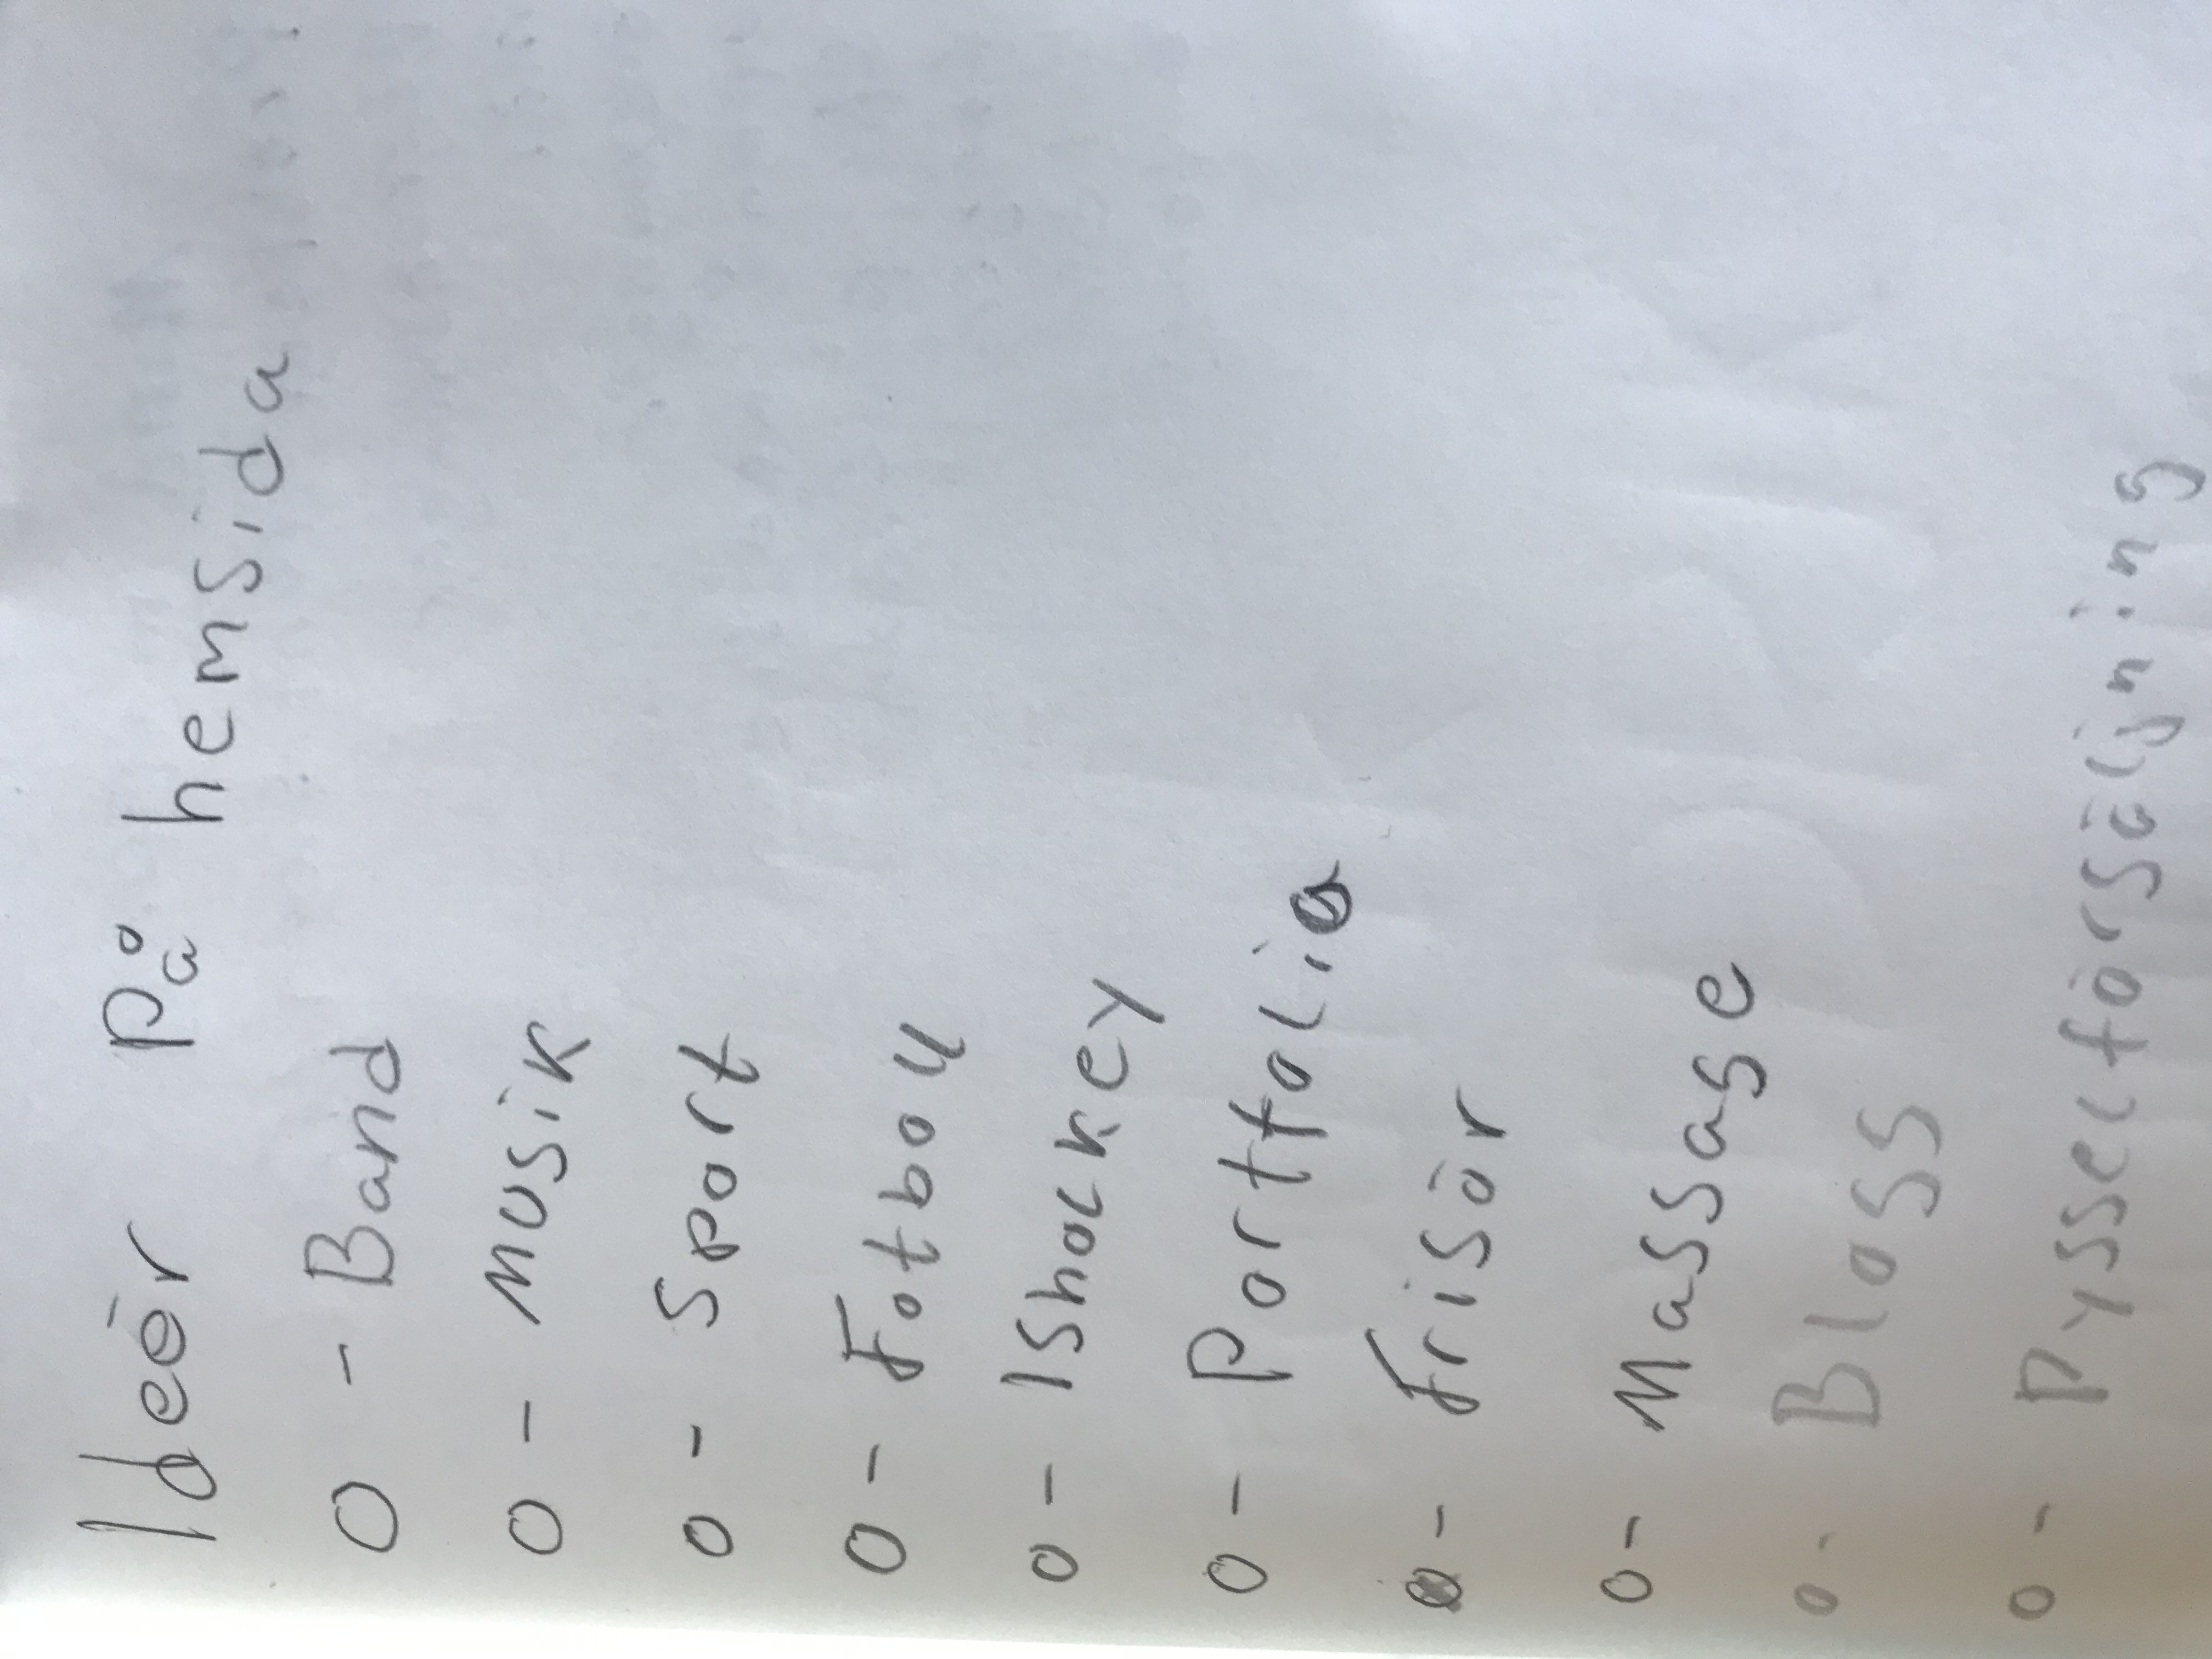 Ideér På hemsida
O - Band
O - Musik
O - Sport
O - Fotboll
O - Ishockey
O - Portfolio
O - Frisör
O - Massage
O - Blogg
O - Pysselförsäljning